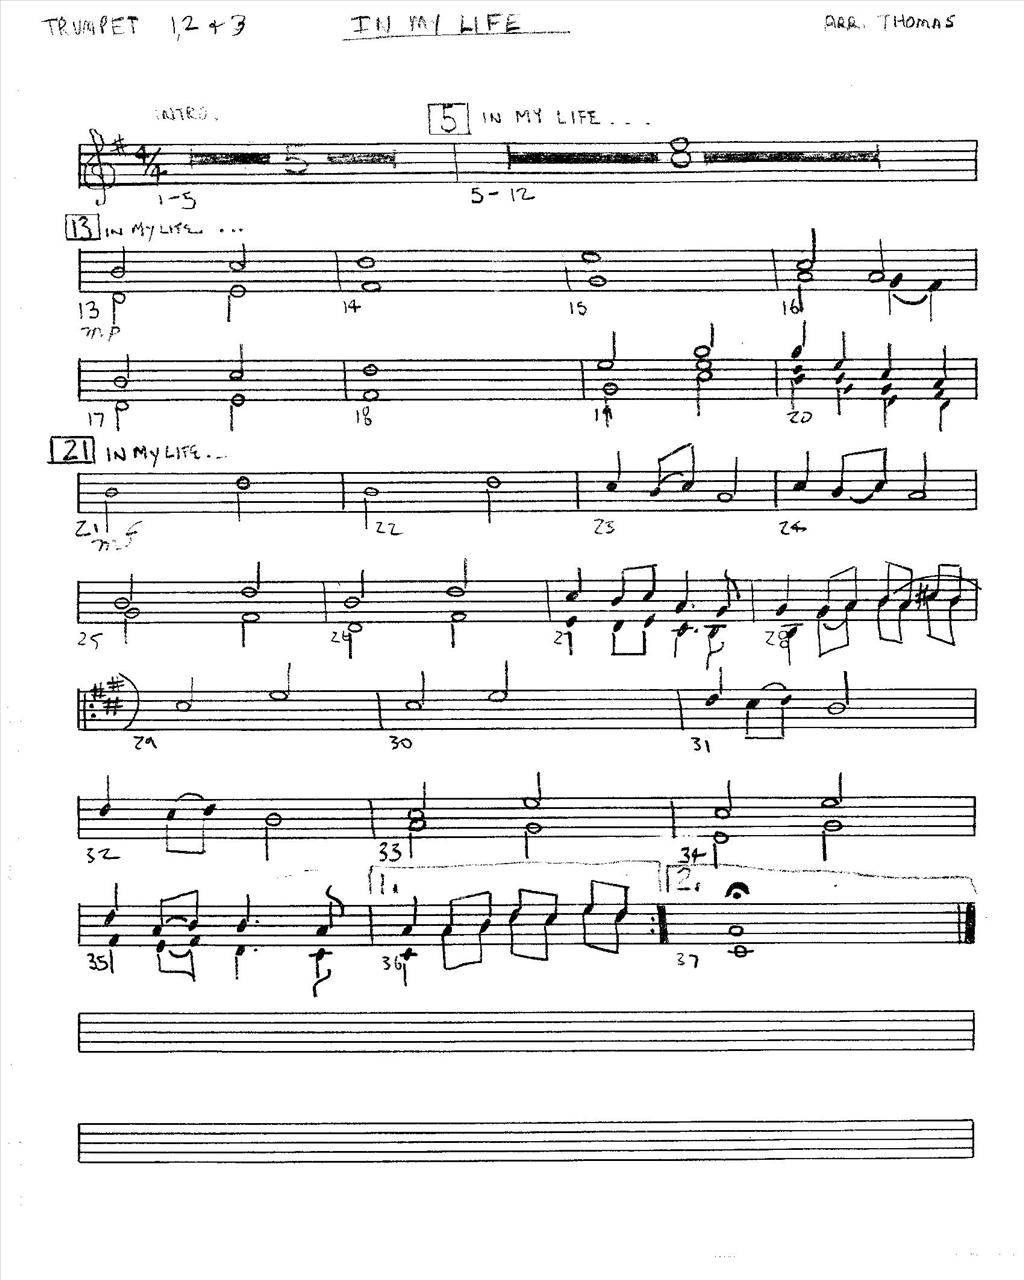 TRUMPET 1,2 + 3 IN MY LIFE ARR. THOMAS
INTRO. 5 IN MY LIFE ...
4/4 5 8
1-5 5-12
13 IN MY LIFE ...
13 14 15 16
mp
17 18 19 20
21 IN MY LIFE ...
21 22 23 24
mf
25 26 27 28
29 30 31
32 33 34
1. 2.
35 36 37